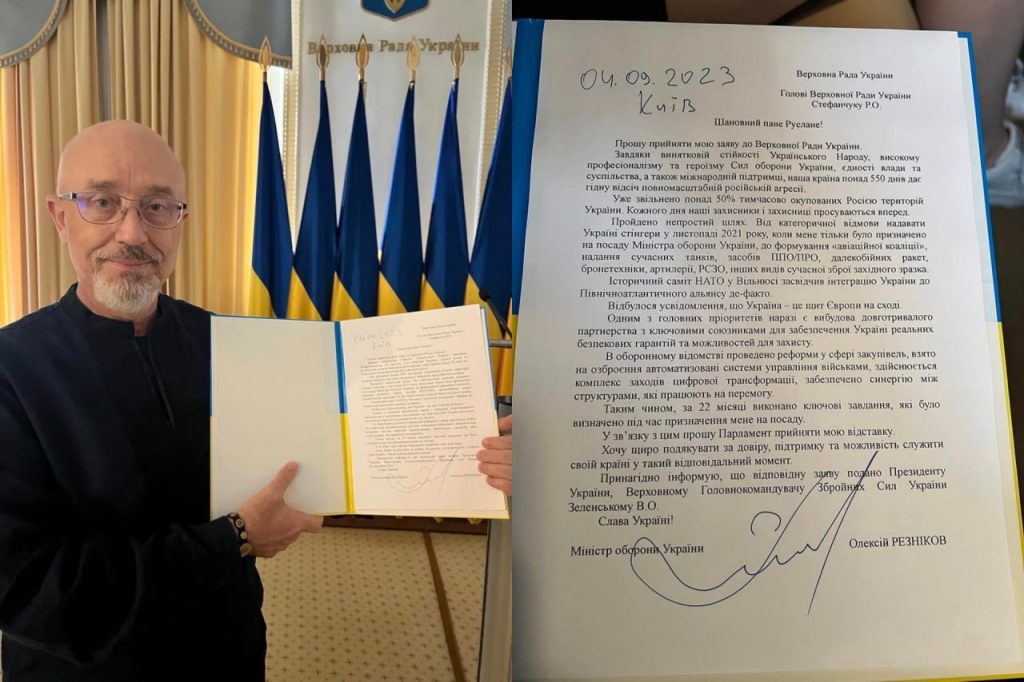 Верховна Рада України
04.09.2023
Київ
Верховна Рада України
Голові Верховної Ради України
Стефанчуку Р.О.
Шановний пане Руслане!
Прошу прийняти мою заяву до Верховної Ради України.
Завдяки винятковій стійкості Українського Народу, високому
професіоналізму та героїзму Сил оборони України, єдності влади та
суспільства, а також міжнародній підтримці, наша країна понад 550 днів дає
гідну відсіч повномасштабній російській агресії.
Уже звільнено понад 50% тимчасово окупованих Росією територій
України. Кожного дня наші захисники і захисниці просуваються вперед.
Пройдено непростий шлях. Від категоричної відмови надавати
Україні стінгери у листопаді 2021 року, коли мене тільки було призначено
на посаду Міністра оборони України, до формування «авіаційної коаліції»,
надання сучасних танків, засобів ППО/ПРО, далекобійних ракет,
бронетехніки, артилерії, РСЗО, інших видів сучасної зброї західного зразка.
Історичний саміт НАТО у Вільнюсі засвідчив інтеграцію України до
Північноатлантичного альянсу де-факто.
Відбулося усвідомлення, що Україна – це щит Європи на сході.
Одним з головних пріоритетів наразі є вибудова довготривалого
партнерства з ключовими союзниками для забезпечення Україні реальних
безпекових гарантій та можливостей для захисту.
В оборонному відомстві проведено реформи у сфері закупівель, взято
на озброєння автоматизовані системи управління військами, здійснюється
комплекс заходів цифрової трансформації, забезпечено синергію між
структурами, які працюють на перемогу.
Таким чином, за 22 місяці виконано ключові завдання, які було
визначено під час призначення мене на посаду.
У зв’язку з цим прошу Парламент прийняти мою відставку.
Хочу щиро подякувати за довіру, підтримку та можливість служити
своїй країні у такий відповідальний момент.
Принагідно інформую, що відповідну заяву подано Президенту
України, Верховному Головнокомандувачу Збройних Сил України
Зеленському В.О.
Слава Україні!
Міністр оборони України
Олексій РЕЗНІКОВ